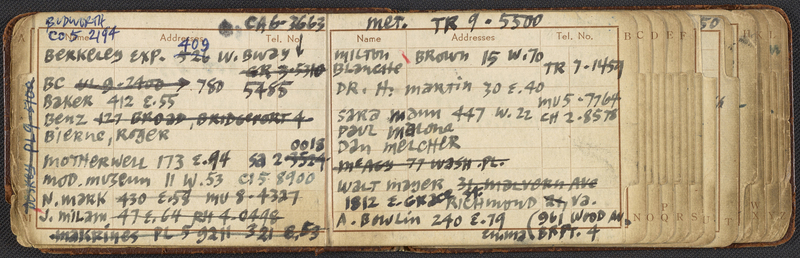 BUDWORTH
CO 5-2194
CA6-3663
Name Addresses Tel. No.
409
BERKELEY EXP. 526 W. BWAY
GR 3-5310
BC VL 9-2400 → 780 5485
BAKER 412 E.55
BENZ 427 BROAD, BRIDGEPORT 4
BIERNE, ROGER
0018
MOTHERWELL 173 E.94 SA 2-9524
MOD. MUSEUM 11 W.53 CI 5 8900
N. MARK 430 E.58 MU 8-4327
J. MILAM 47 E.64 RH 4-0498
MAKRINES PL 5 9211 321 E.53
PL 9-5700
MET. TR 9-5500
Name Addresses Tel. No.
MILTON BROWN 15 W.70
BLANCHE TR 7-1459
DR. H. MARTIN 30 E.40
MU 5-7764
SARA MANN 447 W.22 CH 2-8578
PAUL MALONA
DAN MELCHER
MCAGY 77 WASH. PL.
WALT MAYER 34 MALVERN AVE
1812 E. GRACE RICHMOND 21 VA.
A. BOWLIN 240 E.79 (961 WOOD AV.
EMMA BRPT. 4
B C D E F
50
P
N O Q R S U T
W